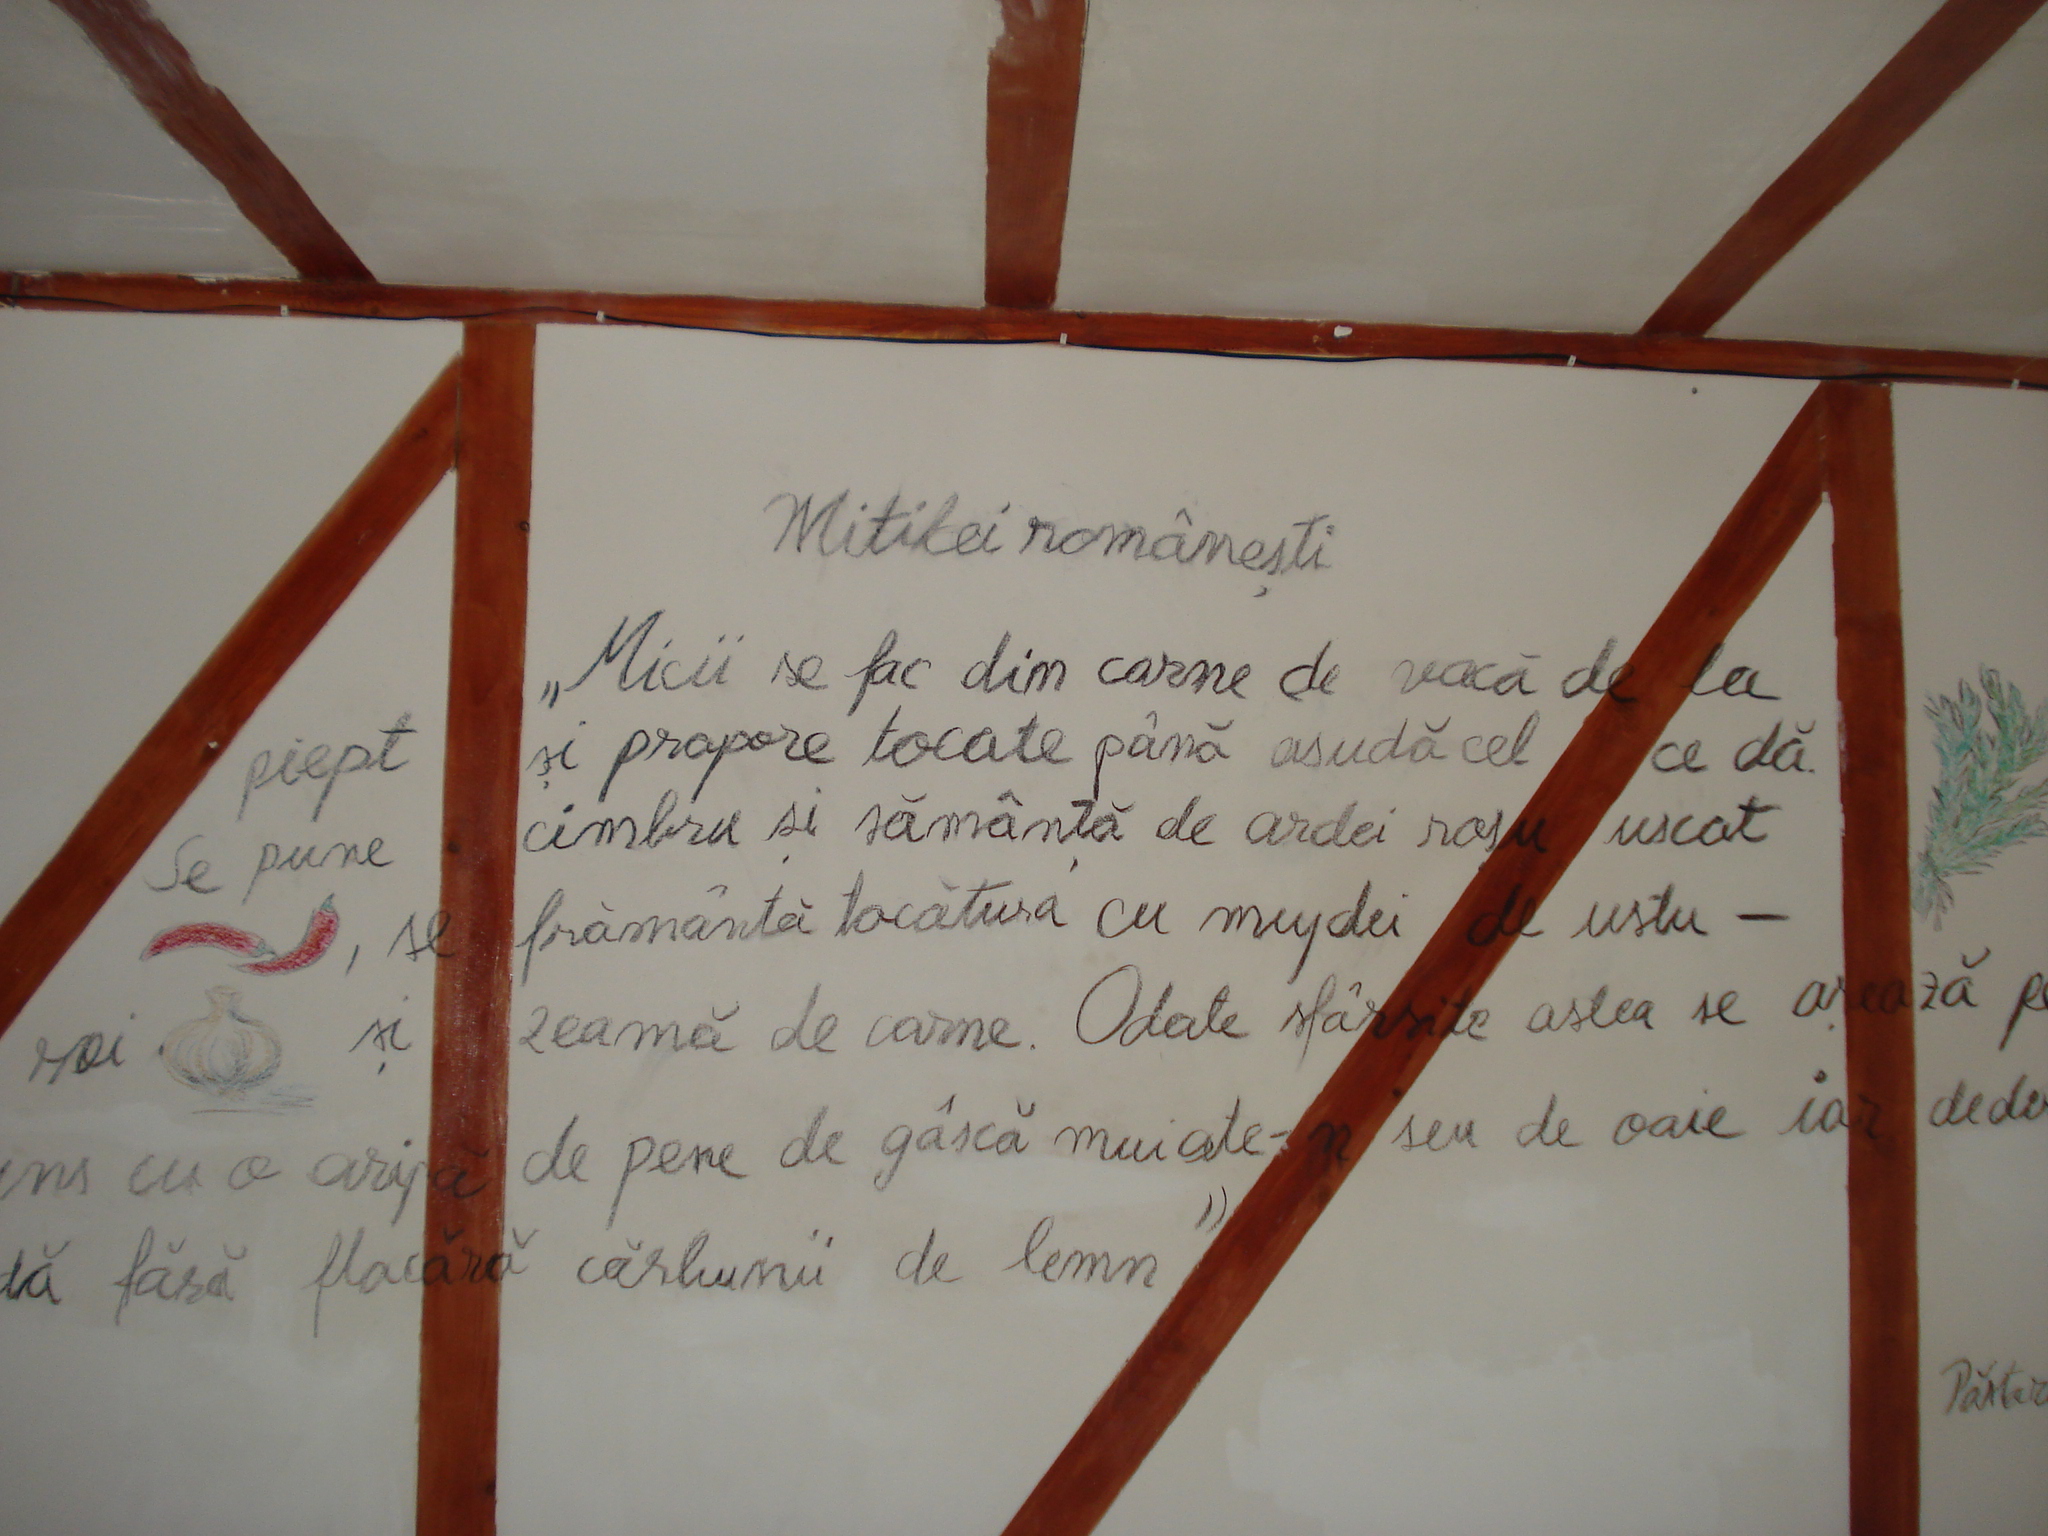 Mitikei românești
„Micii se fac din carne de vacă de la
piept și propore tocate până asudă cel ce dă.
Se pune cimbru și sămânță de ardei roșu uscat
, se frământă tocătura cu mujdei de ustu –
roi și zeamă de carne. Odate sfârșite astea se așează pe
uns cu o aripă de pene de gâscă muiate-n seu de oaie iar dede
dă fără flacără cărbunii de lemn”
Păstra